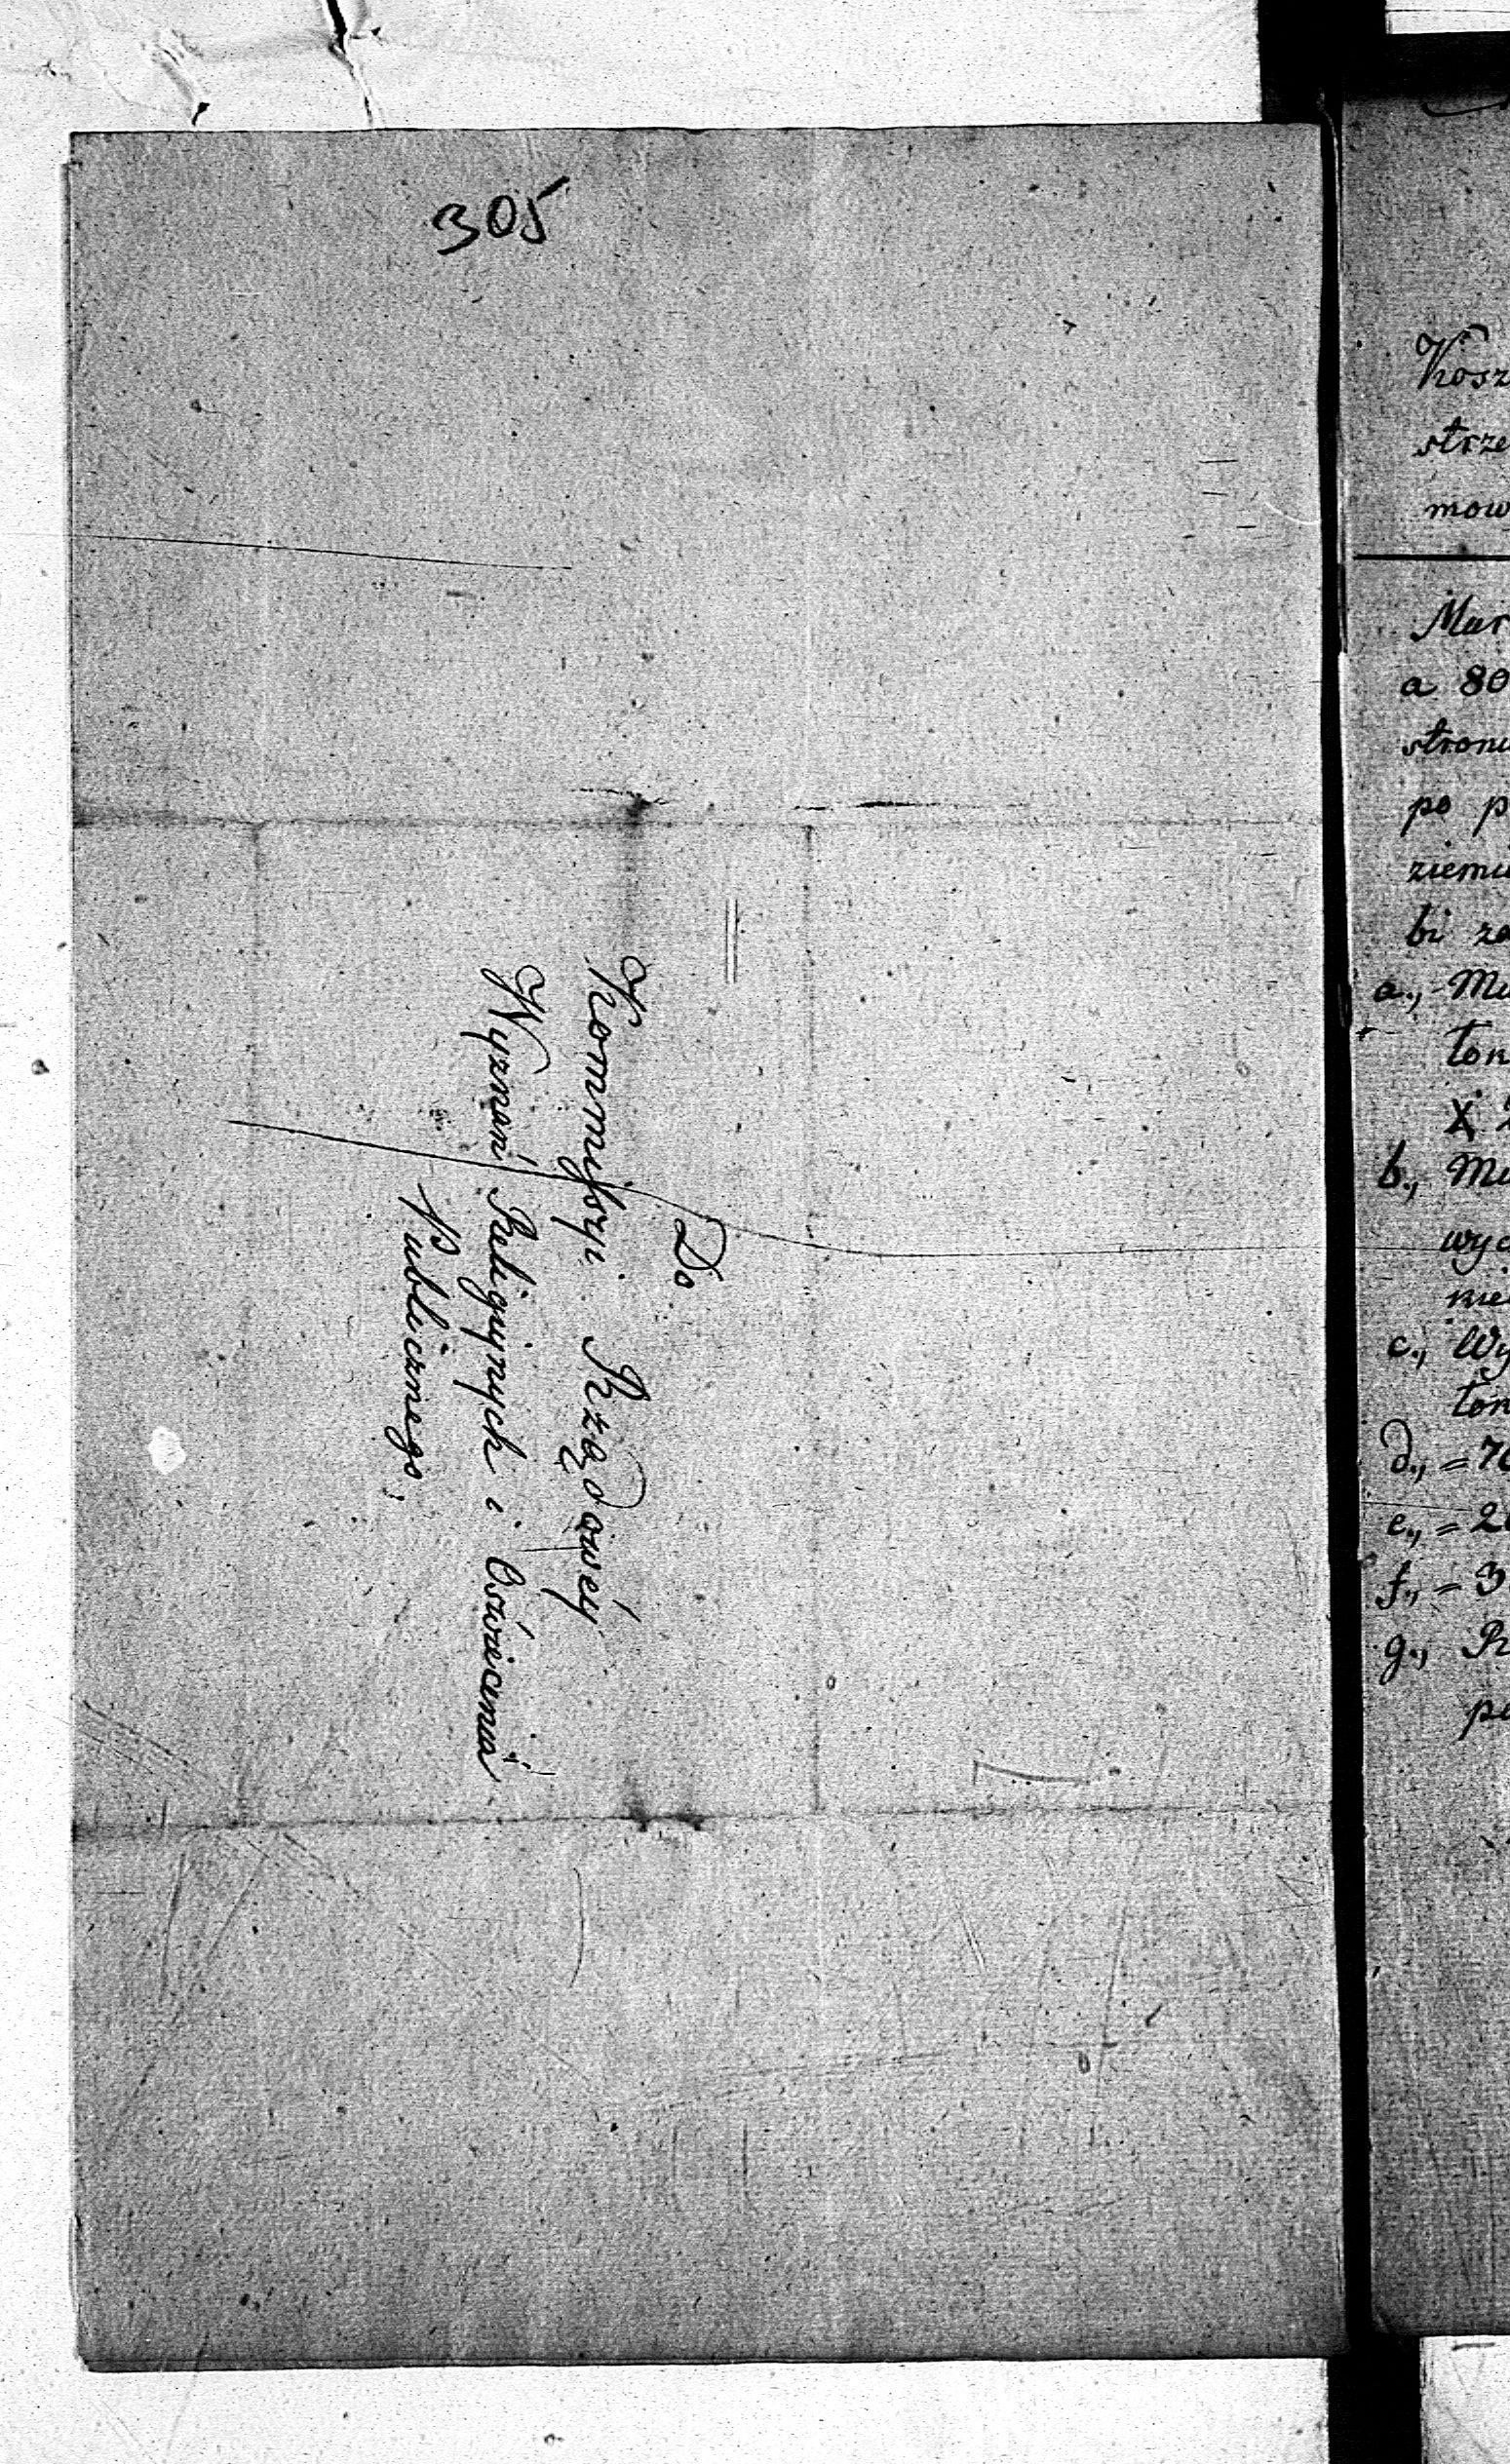 305
Do
Kommissyi Rządowéy
Wyznań Religiynych i Oświecenia
Publicznego.
Kosz
strze
mow
Mar
a 80
stron
po p
ziemi
bi za
a., Mu
łon
X 2
b., Mu
wyc
nie
c., Wy
łon
d., = 70
e., = 20
f., = 3
g., Pr
po